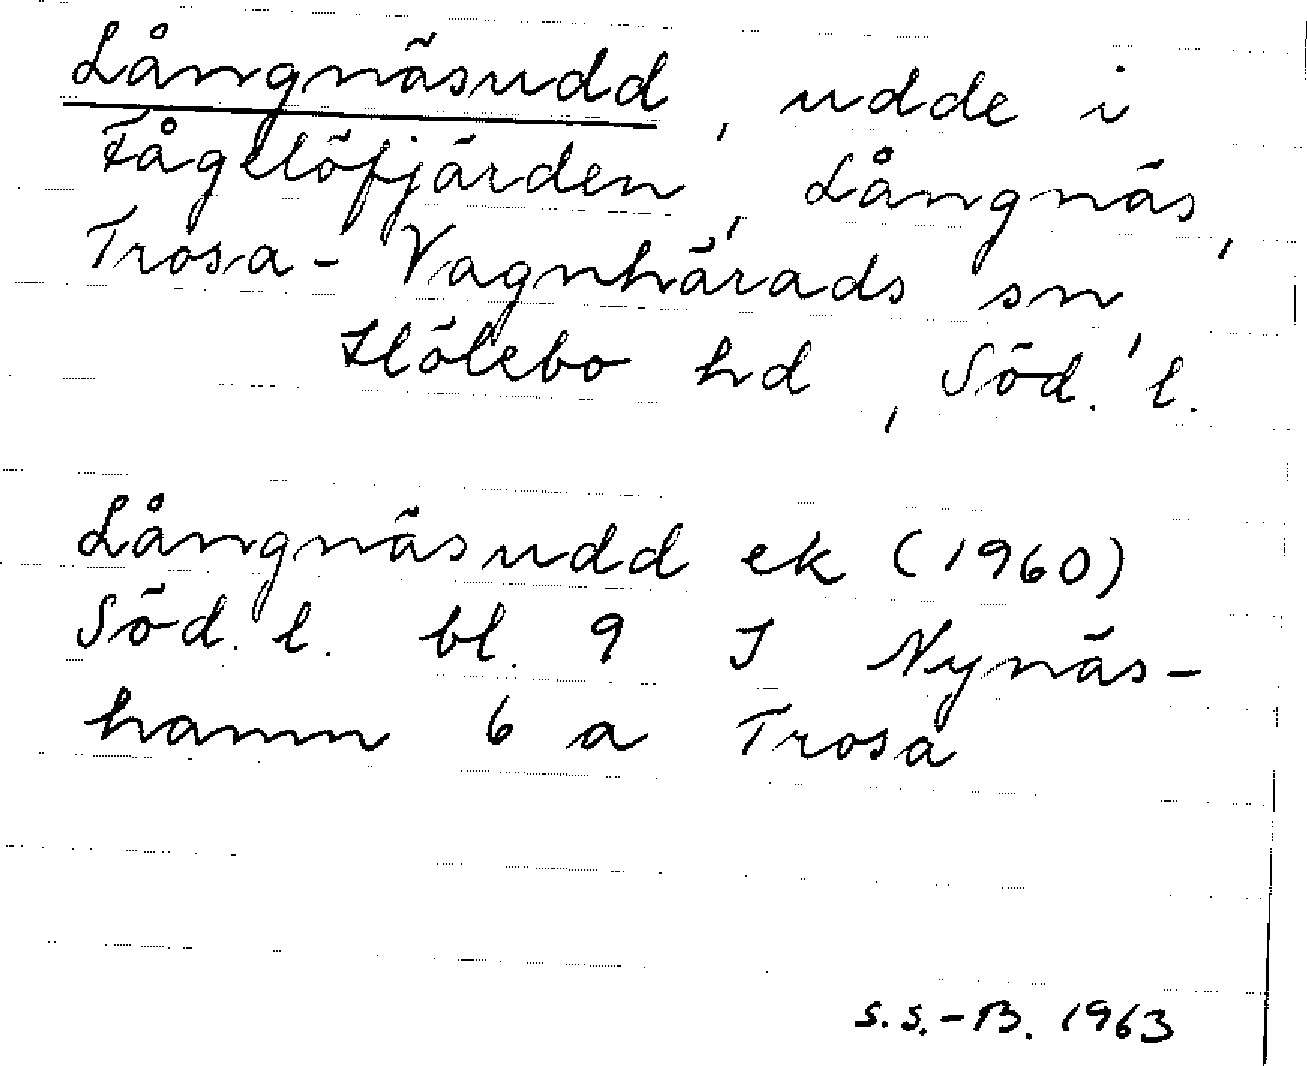 Långnäsudd, udde i
Fågelöfjärden, Långnäs,
Trosa-Vagnhärads sn,
Hölebo hd, Söd. l.
Långnäsudd ek (1960)
Söd. l. bl. 9 I Nynäs-
hamn 6 a Trosa
S.S.-B. 1963